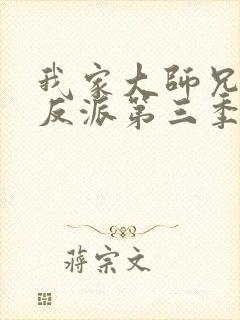 我家大師兄
反派第三季
蔣宗文